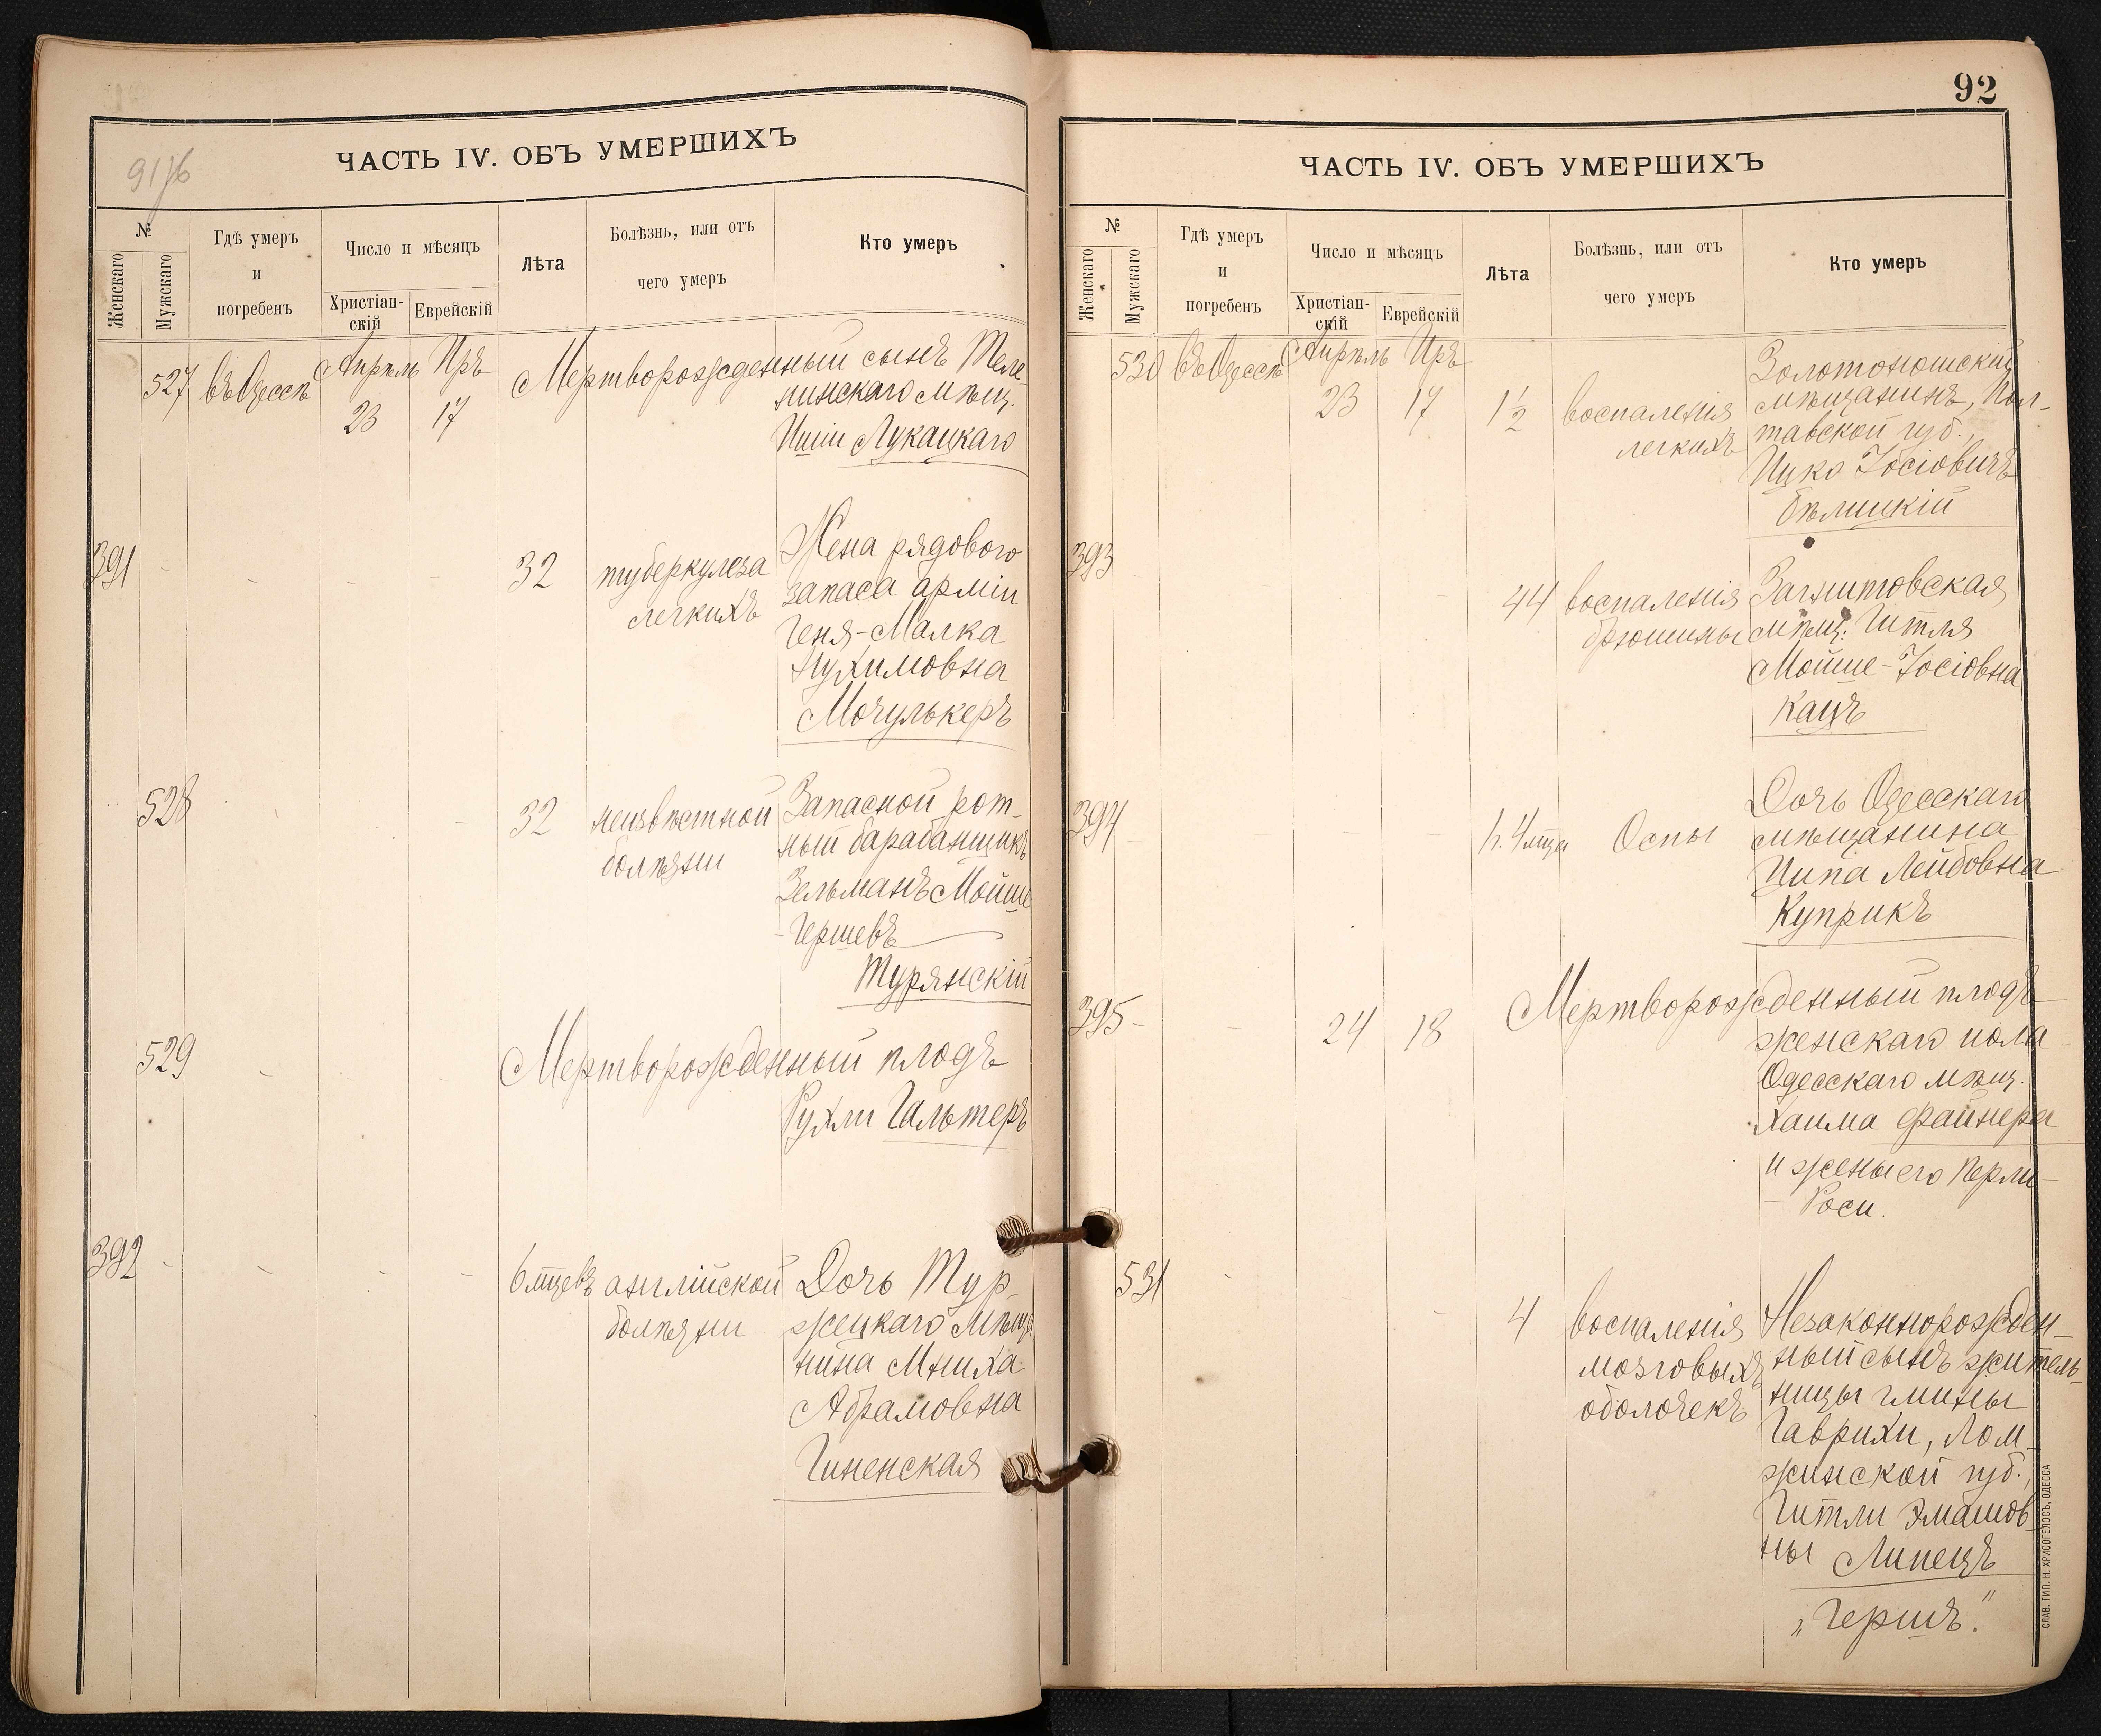 91/б
ЧАСТЬ IV. ОБЪ УМЕРШИХЪ
№
Женскаго
Мужскаго
Гдѣ умеръ
и
погребенъ
Число и мѣсяцъ
Христіан-
скій
Еврейскій
Лѣта
Болѣзнь, или отъ
чего умеръ
Кто умеръ
527 въ Одессѣ Апрѣль Иръ Мертворожденный сынъ Теле-
23 17 нинскаго мѣщ.
Ииши Лукацкаго
391 - - - - 32 туберкулеза Жена рядового
легкихъ запаса арміи
Геня-Малка
Нухимовна
Мочулькеръ
528 - - - 32 неизвѣстной Запасной рот-
болѣзни ный барабанщикъ
Зельманъ Мойше
-Гершевъ
Турянскій
529 - - - Мертворожденный плодъ
Рухли Гальтеръ
392 - - - - 6 мцевъ англійской Дочь Тур-
болѣзни жецкаго мѣща
нина Мниха
Абрамовна
Гиненская
92
ЧАСТЬ IV. ОБЪ УМЕРШИХЪ
№
Женскаго
Мужскаго
Гдѣ умеръ
и
погребенъ
Число и мѣсяцъ
Христіан-
скій
Еврейскій
Лѣта
Болѣзнь, или отъ
чего умеръ
Кто умеръ
530 въ Одессѣ Апрѣль Иръ Золотоношскій
23 17 1½ воспаленія мѣщанинъ, Пол-
легкихъ тавской губ.,
Ицко Іосіовичъ
Бѣлицкій
393 - - - 44 воспаленія Загнитовская
брюшины мѣщ. Гитля
Мойше-Іосіовна
Кацъ
394 - - - - 1 г. 4 мца Оспы Дочь Одесскаго
мѣщанина
Ципа Лейбовна
Куприкъ
395 - - 24 18 Мертворожденный плодъ
женскаго пола
Одесскаго мѣщ.
Хаима Файнера
и жены его Перли-
- Роси.
531 - - 4 воспаленія Незаконнорожден-
мозговыхъ ный сынъ житель-
оболочекъ ницы гмины
Гаврихи, Лом-
жинской губ.,
Гитли Эмашов-
ны Липецъ
„Гершъ."
СЛАВ. ТИП. Н. ХРИСОГЕЛОСЪ, ОДЕССА